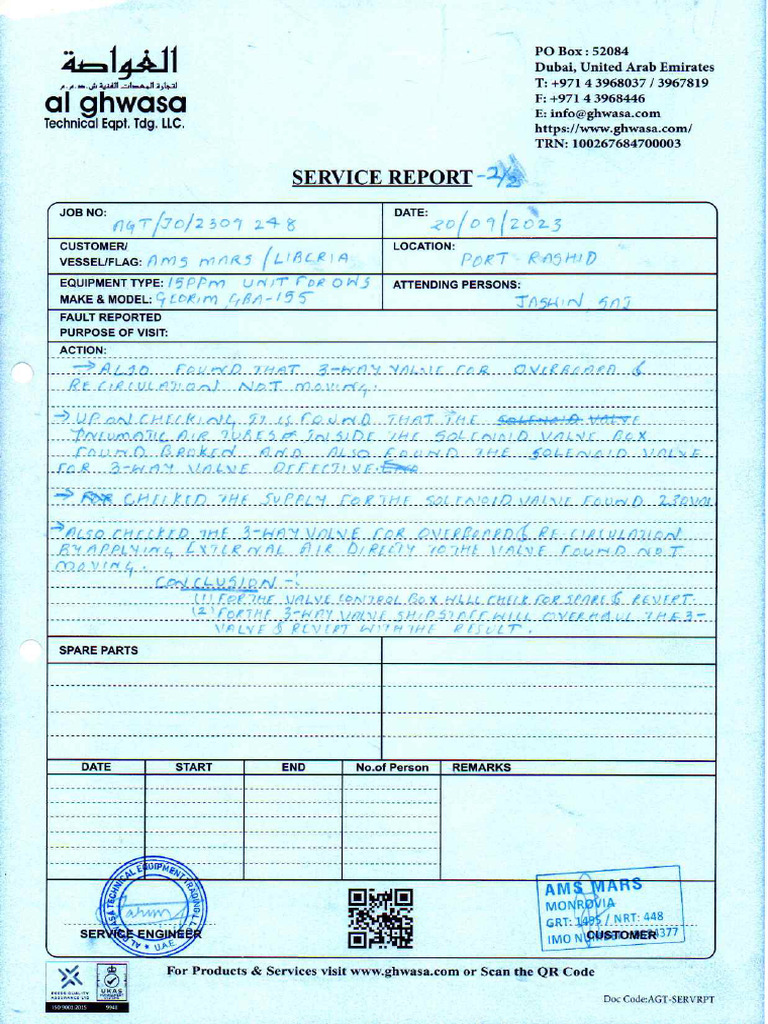 الغواصة
لتجارة المعدات الفنية ش.ذ.م.م
al ghwasa
Technical Eqpt. Tdg. LLC.
PO Box : 52084
Dubai, United Arab Emirates
T: +971 4 3968037 / 3967819
F: +971 4 3968446
E: info@ghwasa.com
https://www.ghwasa.com/
TRN: 100267684700003
SERVICE REPORT -2/2
JOB NO: AGT/JO/2309 248
DATE: 20/09/2023
CUSTOMER/
VESSEL/FLAG: AMS MARS /LIBERIA
LOCATION: PORT RASHID
EQUIPMENT TYPE: 15PPM UNIT FOR OWS
MAKE & MODEL: GEORIM GBA-155
ATTENDING PERSONS: JASHIN SAJ
FAULT REPORTED
PURPOSE OF VISIT:
ACTION:
→ ALSO FOUND THAT 3-WAY VALVE FOR OVERBOARD &
RECIRCULATION NOT MOVING.
→ UPON CHECKING IT IS FOUND THAT THE SOLENOID VALVE
PNEUMATIC AIR TUBES INSIDE THE SOLENOID VALVE BOX
FOUND BROKEN AND ALSO FOUND THE SOLENOID VALVE
FOR 3-WAY VALVE DEFECTIVE.
→ CHECKED THE SUPPLY FOR THE SOLENOID VALVE FOUND 230VAC
→ ALSO CHECKED THE 3-WAY VALVE FOR OVERBOARD & RE-CIRCULATION
BY APPLYING EXTERNAL AIR DIRECTLY TO THE VALVE FOUND NOT
MOVING.
CONCLUSION -:
(1) FOR THE VALVE CONTROL BOX WILL CHECK FOR SPARE & REVERT.
(2) FOR THE 3-WAY VALVE SHIP STAFF WILL OVERHAUL THE 3-
VALVE & REVERT WITH THE RESULT.
SPARE PARTS
DATE START END No.of Person REMARKS
AL GHWASA TECHNICAL EQUIPMENT TRADING L.L.C
★ UAE ★
SERVICE ENGINEER
AMS MARS
MONROVIA
GRT: 1495 / NRT: 448
IMO NUMBER 4377
CUSTOMER
ISO 9001:2015
UKAS
For Products & Services visit www.ghwasa.com or Scan the QR Code
Doc Code:AGT-SERVRPT